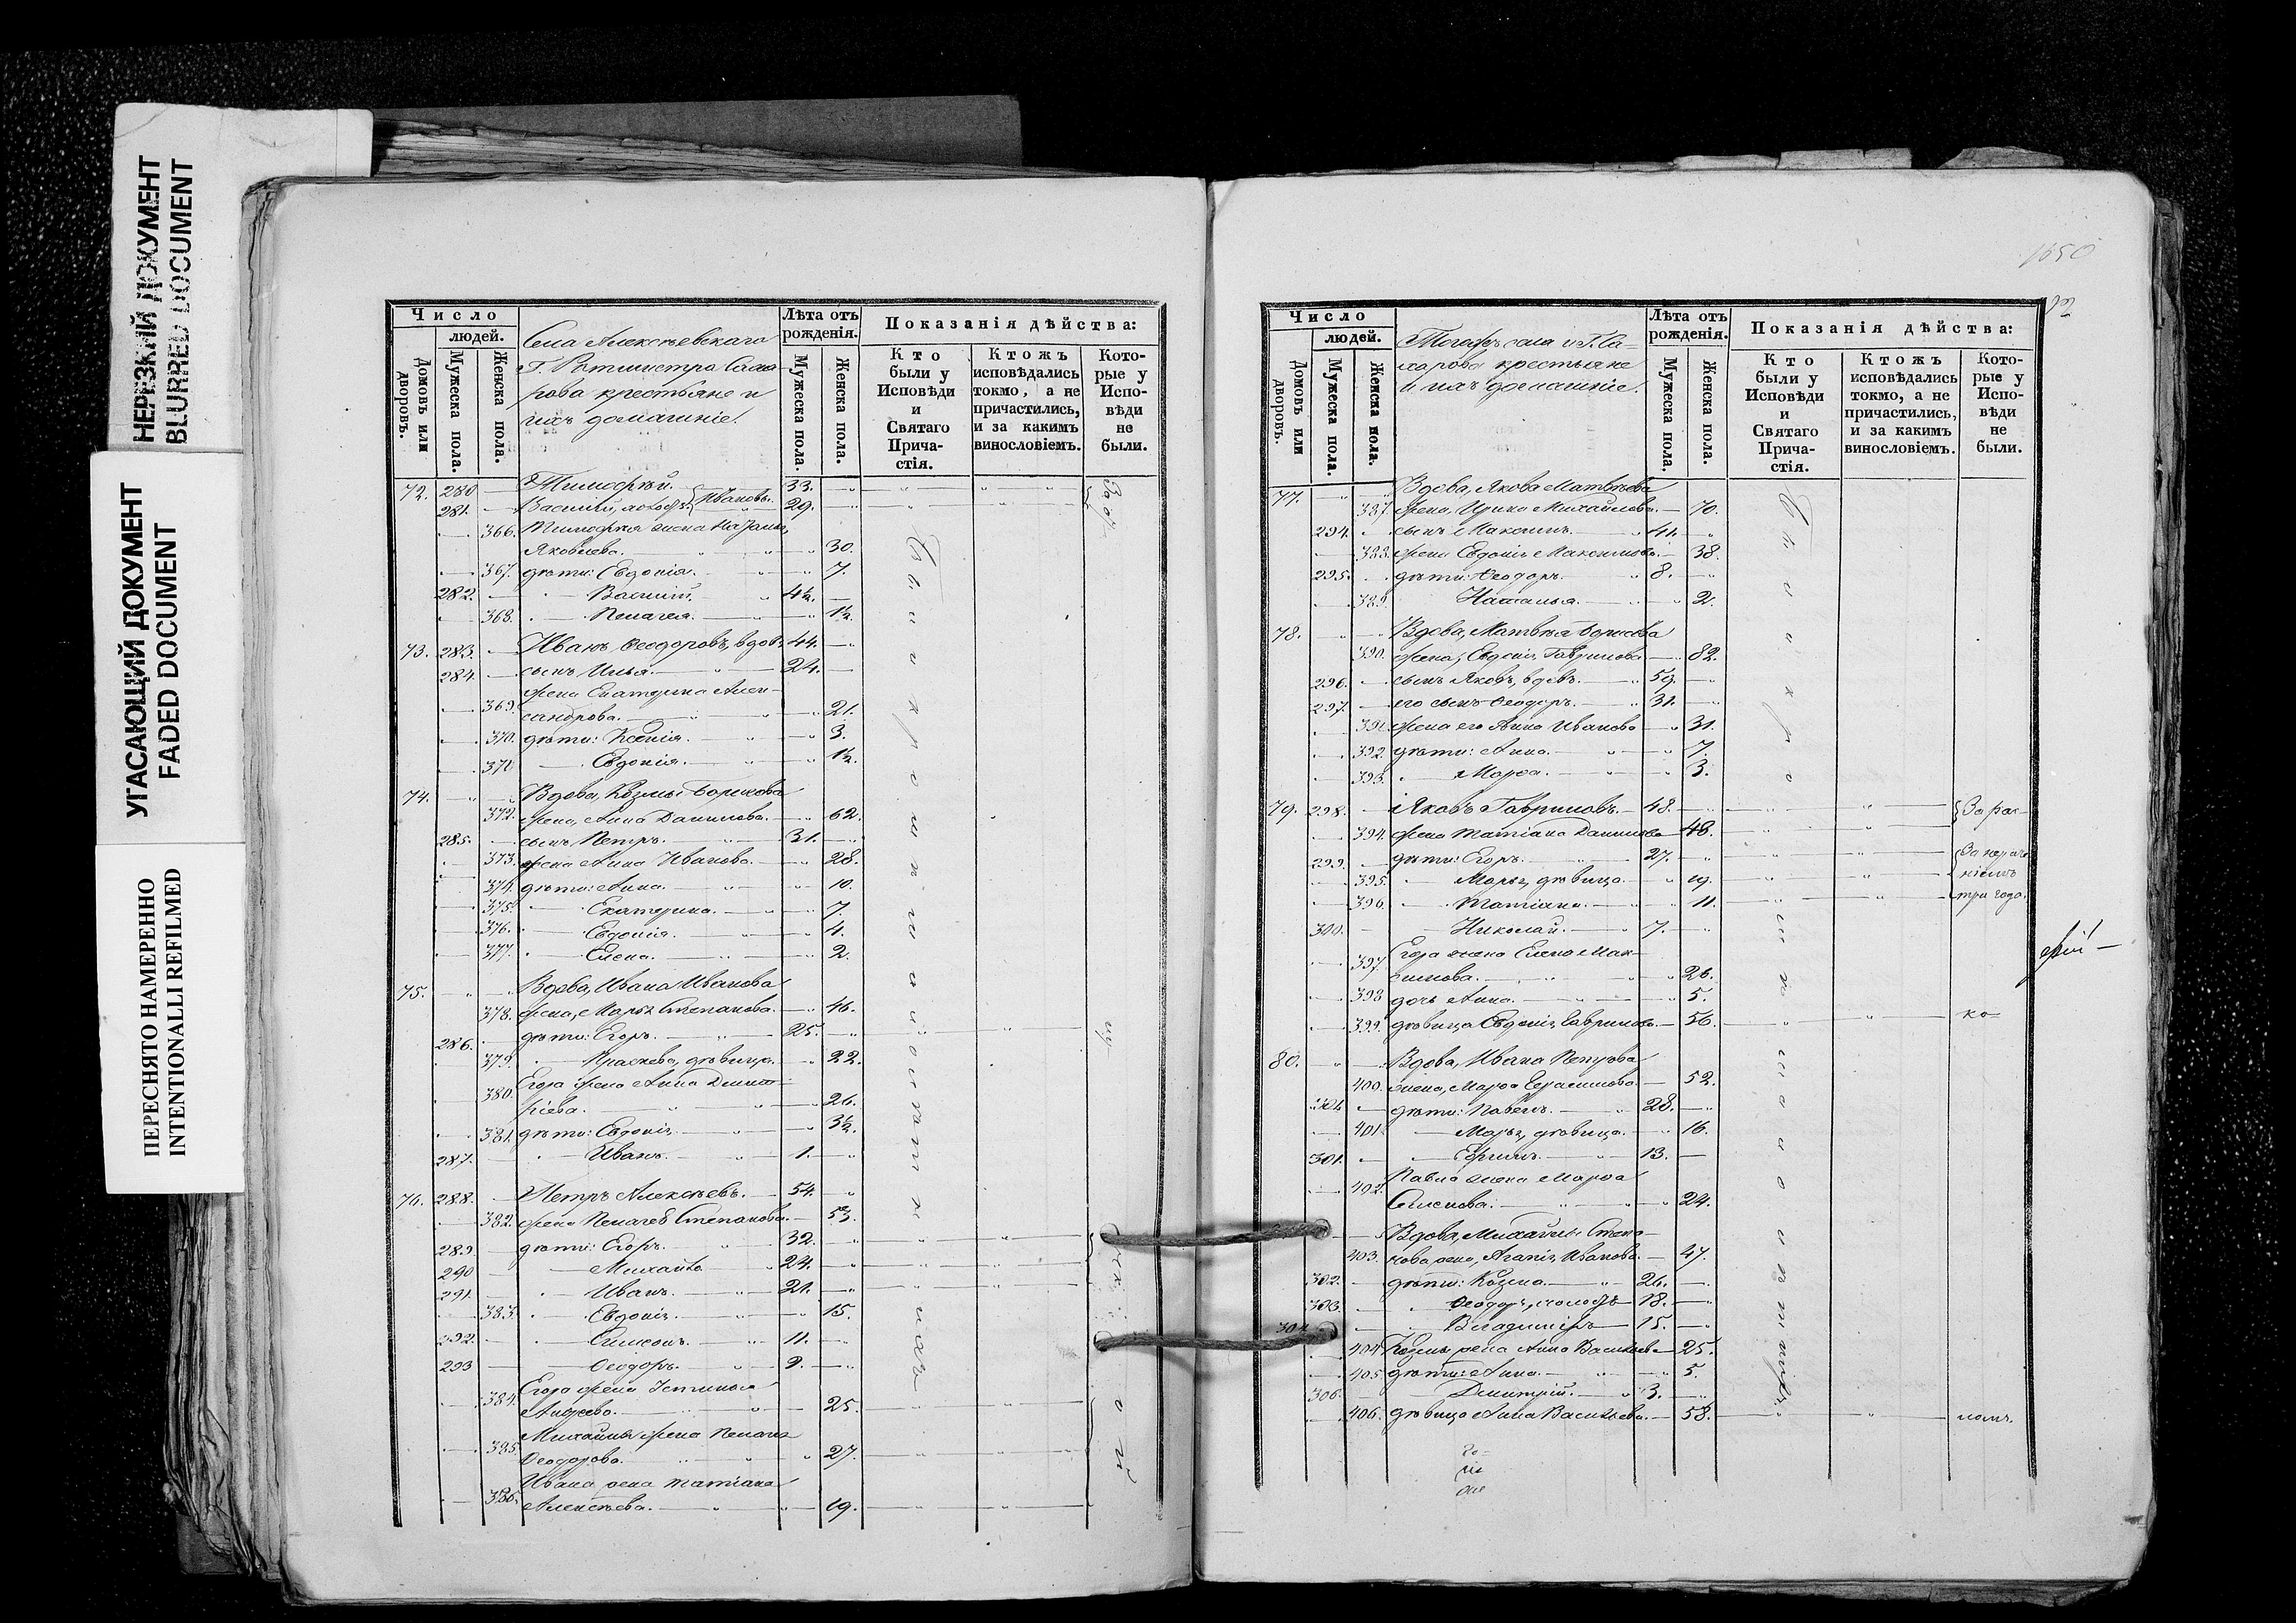 НЕРЕЗКИЙ ДОКУМЕНТ
BLURRED DOCUMENT
УГАСАЮЩИЙ ДОКУМЕНТ
FADED DOCUMENT
ПЕРЕСНЯТО НАМЕРЕННО
INTENTIONALLI REFILMED
Число
людей.
Домовъ или дворовъ.
Мужеска пола.
Женска пола.
Села Алексѣевскаго
Г. Ротмистра Саха
рова крестьяне и
ихъ домашніе.
Лѣта отъ рожденія.
Мужеска пола.
Женска пола.
Показанія дѣйства:
Кто были у Исповѣди и Святаго Прича-стія.
Ктожъ исповѣдались токмо, а не причастились, и за какимъ винословіемъ.
Кото-рые у Испо-вѣди не были.
72. 280 Тимофѣй 33.
281. Василій, Ивановы. 29.
366. Тимофея жена Наталья
Яковлева. 30.
367. дѣти: Евдокія. 7.
282. Василій. 4½.
368. Пелагея. 1½.
73. 283. Иванъ Ѳеодоровъ, вдовъ 44.
284. сынъ Илья. 24.
369. жена Екатерина Алек-
сандрова. 21.
370. дѣти: Ксенія. 3.
371 Евдокія. 1½.
74. Вдова, Козмы Борисова
372. жена, Анна Данилова. 62.
285. сынъ Петръ. 31.
373. жена Анна Иванова. 28.
374. дѣти: Анна. 10.
375. Екатерина. 7.
376. Евдокія. 4.
377. Елена. 2.
75. Вдова, Ивана Иванова
378. жена, Марья Степанова. 46.
286. дѣти: Егоръ. 25.
379. Прасковья, дѣвица. 22.
380. Егора жена Анна Дмит-
ріева. 26.
381. дѣти: Евдокія. 3½.
287. Иванъ. 1.
76. 288. Петръ Алексѣевъ. 54.
382. жена Пелагея Степанова. 53.
289. дѣти: Егоръ. 32.
290 Михайло 24.
291. Иванъ. 21.
383. Евдокія. 15.
292. Симеонъ. 11.
293 Ѳеодоръ. 9.
384. Егора жена Устинья
Андреева. 25.
385. Михайлы жена Пелагея
Ѳеодорова. 27.
386. Ивана жена Татіана
Алексѣева. 19.
1650
Число
людей.
Домовъ или дворовъ.
Мужеска пола.
Женска пола.
Тогожъ села и Г. Са-
харова крестьяне
и ихъ домашніе.
Лѣта отъ рожденія.
Мужеска пола.
Женска пола.
Показанія дѣйства:
Кто были у Исповѣди и Святаго Прича-стія.
Ктожъ исповѣдались токмо, а не причастились, и за какимъ винословіемъ.
Кото-рые у Испо-вѣди не были.
77. Вдова, Якова Матвѣева
387. жена, Ирина Михайлова. 70.
294. сынъ Максимъ. 41.
388. жена Евдокія Максимова. 38.
295. дѣти: Ѳеодоръ. 8.
389. Наталья. 2.
78. Вдова, Матвѣя Борисова
390. жена, Евдокія Гаврилова 82.
296. сынъ Яковъ, вдовъ. 59.
297. его сынъ Ѳеодоръ. 31.
391. жена его Анна Иванова 31.
392. дѣти: Анна. 7.
393. Марѳа. 3.
79. 298. Яковъ Гавриловъ. 48.
394. жена Татіана Данилова 48.
299. дѣти: Егоръ. 27.
395. Марья, дѣвица. 19.
396. Татіана. 11.
300. Николай. 7.
397. Егора жена Елена Мак-
симова. 26.
398 дочь Анна. 5.
399. дѣвица Евдокія Гаврилова. 56.
три года.
80. Вдова, Ивана Петрова
400. жена, Марѳа Герасимова. 52.
дѣти: Павелъ. 28.
401. Марья, дѣвица. 16.
301. 13.
402. Павла жена Марѳа
24.
Вдова, Михайлы Степа
403. нова жена, Агапія Иванова. 47.
302. дѣти: Козма. 26.
303. Ѳеодоръ, 18.
304. Владиміръ 15.
404 Козмы жена Анна Васильева 25.
405 дѣти: Анна. 5.
306. Дмитрій. 3.
406. дѣвица Анна Васильева. 58.